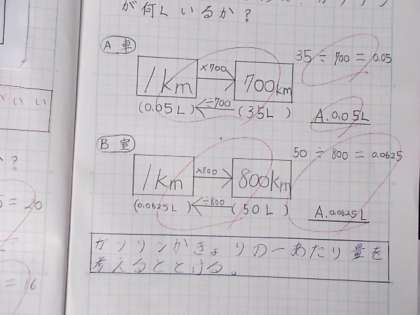 が何Lいるか?
A車
1km ×700 700km
(0.05L) ÷700 (35L)
35 ÷ 700 = 0.05
A. 0.05L
B車
1km ×800 800km
(0.0625L) ÷800 (50L)
50 ÷ 800 = 0.0625
A. 0.0625L
ガソリンがきょりの一あたり量を
考えるととける。
いい
か?
= 20
= 16